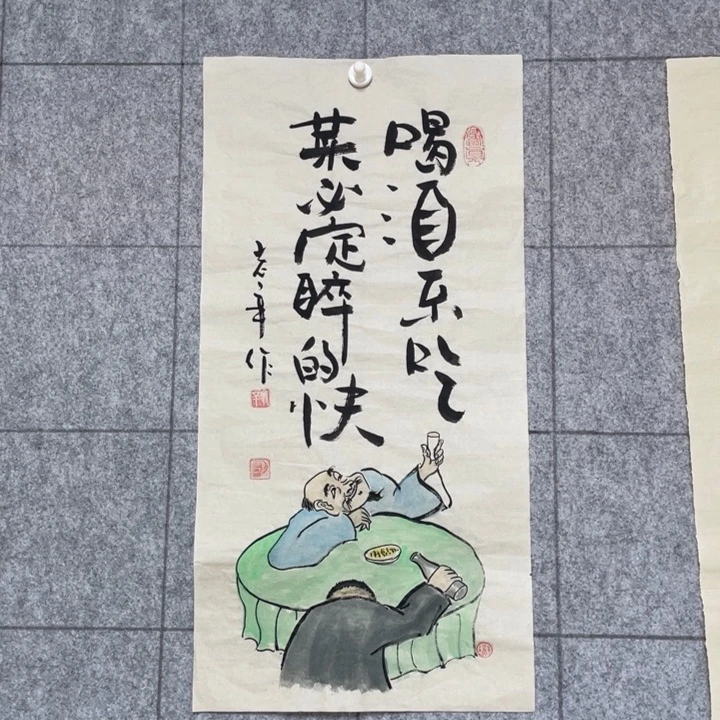 喝酒不吃
菜必定醉的快
老作